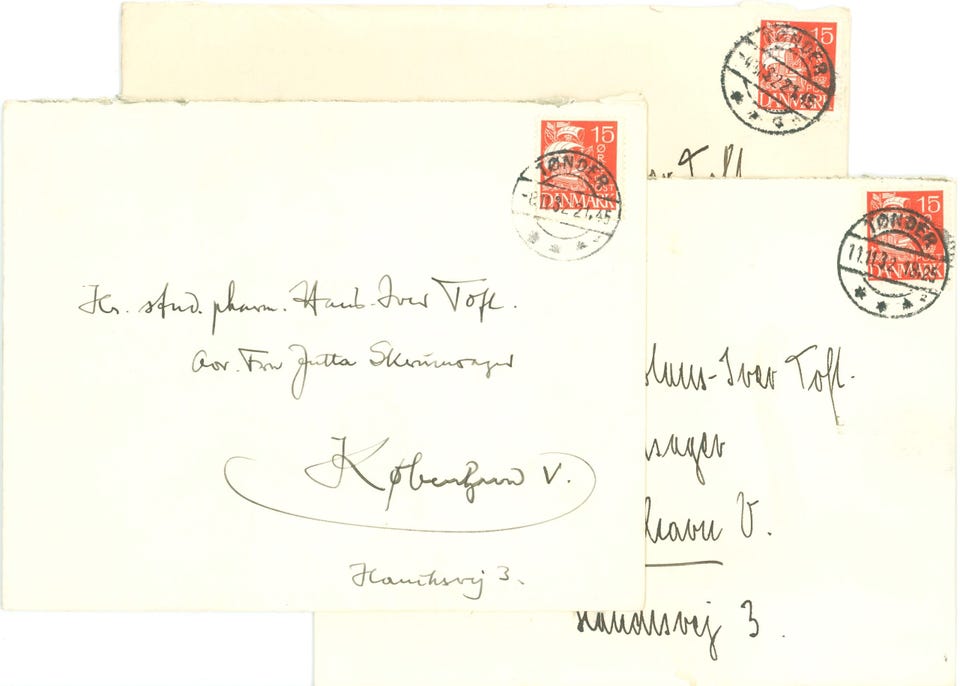 15
TØNDER
DANMARK
Toft
15
ØRE
POST
TØNDER
-8.11.32.21.45
DANMARK
Hr. stud. pharm. Hans-Iver Toft.
Adr. Fru Jutta
København V.
3.
15
TØNDER
11.11.32
DANMARK
Hans-Iver Toft.
sager
havn V.
3.